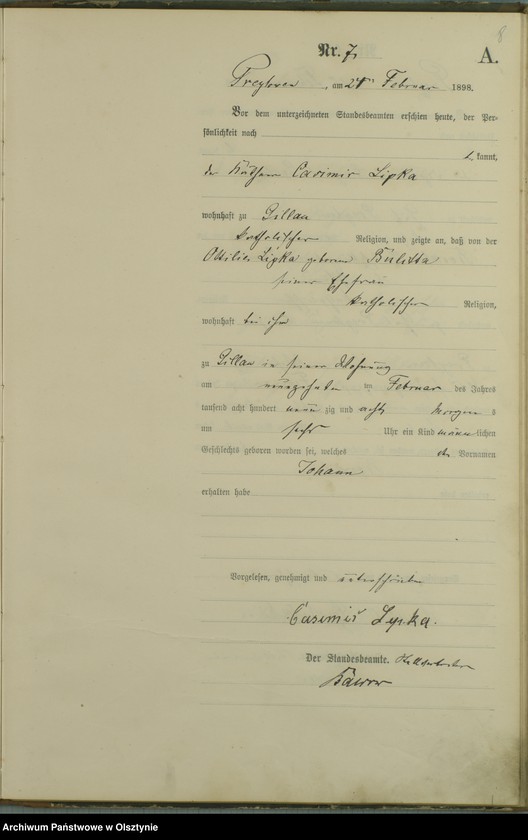 8
Nr. 7.
A.
am 21ten Februar 1898.
Vor dem unterzeichneten Standesbeamten erschien heute, der Per-
sönlichkeit nach
kannt,
der Käthner Casimir Lipka
wohnhaft zu Gillau
katholischer Religion, und zeigte an, daß von der
Ottilie Lipka geborenen Bulitta
seiner Ehefrau
katholischer Religion,
wohnhaft bei ihm
zu Gillau in seiner Wohnung
am neunzehnten ten Februar des Jahres
tausend acht hundert neun zig und acht Morgens
um sechs Uhr ein Kind männlichen
Geschlechts geboren worden sei, welches den Vornamen
Johann
erhalten habe
Vorgelesen, genehmigt und unterschrieben
Casimir Lypka.
Der Standesbeamte.
Archiwum Państwowe w Olsztynie